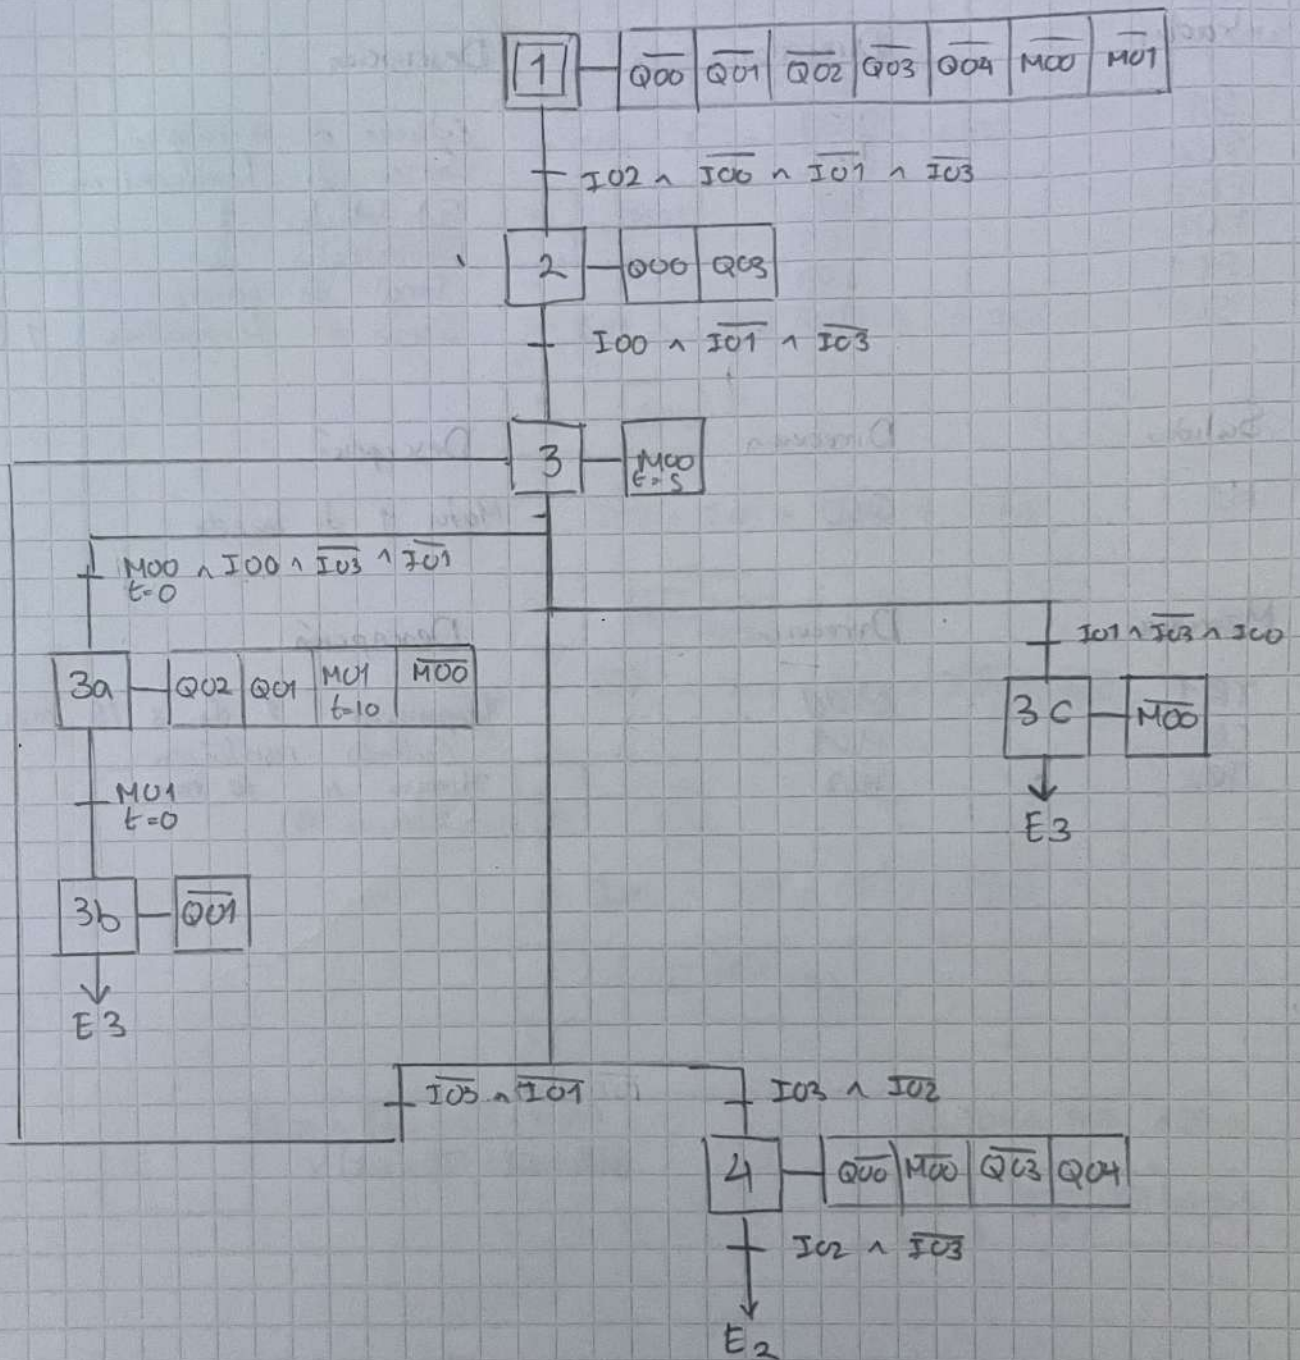 1 Q̅0̅0̅ Q̅0̅1̅ Q̅0̅2̅ Q̅0̅3̅ Q̅0̅4̅ M̅0̅0̅ M̅0̅1̅
I02 ∧ I̅0̅0̅ ∧ I̅0̅1̅ ∧ I̅0̅3̅
2 Q00 Q03
I00 ∧ I̅0̅1̅ ∧ I̅0̅3̅
3 M00
t=5
M00 ∧ I00 ∧ I̅0̅3̅ ∧ I̅0̅1̅
t=0
I01 ∧ I̅0̅3̅ ∧ I00
3a Q02 Q01 M01 M̅0̅0̅
t=10
3C M̅0̅0̅
M01
t=0
E3
3b Q̅0̅1̅
E3
I̅0̅3̅ ∧ I̅0̅1̅
I03 ∧ I̅0̅2̅
4 Q̅0̅0̅ M̅0̅0̅ Q̅0̅3̅ Q04
I02 ∧ I̅0̅3̅
E2